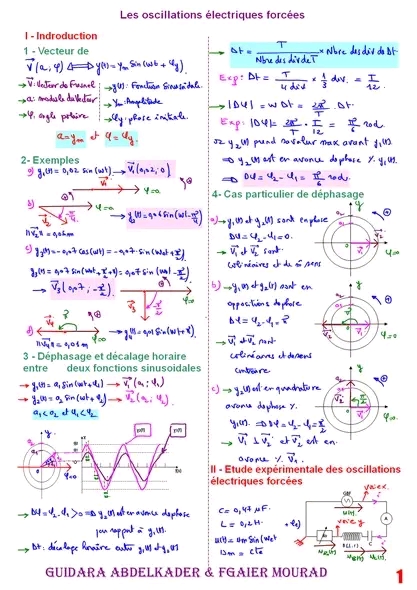 Les oscillations électriques forcées
I - Indroduction
1 - Vecteur de
V(a, φ) ⟺ y(t) = ym sin(wt + φy)
→ V: Vecteur de Fresnel → y(t): Fonction sinusoïdale.
a: module du vecteur ym: Amplitude
φ: angle polaire φy: phase initiale.
a = ym et φ = φy.
2- Exemples
a) y1(t) = 0,02 sin(wt). → V1(0,02; 0)
b) → y2(t) = 0,06 sin(wt - π/4)
||V2|| = 0,06m
c) y3(t) = -0,07 cos(wt) = -0,07 sin(wt + π/2)
y3(t) = 0,07 sin(wt + π/2 + π) = 0,07 sin(wt - π/2)
→ V3(0,07; -π/2)
d) → y4(t) = 0,01 sin(wt + π)
||V4|| = 0,01m
3 - Déphasage et décalage horaire
entre deux fonctions sinusoidales
y1(t) = a1 sin(wt + φ1) → V1(a1; φ1)
y2(t) = a2 sin(wt + φ2) → V2(a2; φ2)
a1 < a2 et φ1 < φ2
→ Δφ = φ2 - φ1 > 0 ⟹ y2(t) est en avance de phase
par rapport à y1(t).
→ Δt: décalage horaire entre y1(t) et y2(t)
→ Δt = T / Nbre des div de T × Nbre des div de Δt
Exp: Δt = T / 4 div × 1/3 div. = T/12
→ |Δφ| = w Δt = 2π/T . Δt.
Exp: |Δφ| = 2π/T . T/12 = π/6 rad
or y2(t) prend sa valeur max avant y1(t)
⟹ y2(t) est en avance de phase % y1(t)
⟹ Δφ = φ2 - φ1 = π/6 rad.
4- Cas particulier de déphasage
a) → y1(t) et y2(t) sont en phase
Δφ = φ2 - φ1 = 0.
→ V1 et V2 sont
colinéaires et de m sens
b) → y1(t) et y2(t) sont en
oppositions de phase
Δφ = φ2 - φ1 = π
→ V1 et V2 sont
colinéaires et de sens
contraire
c) → y2(t) est en quadrature
avance de phase %
y1(t). ⟹ Δφ = φ2 - φ1 = π/2
→ V1 ⊥ V2 et V2 est en
avance % V1.
II - Etude expérimentale des oscillations
électriques forcées
C = 0,47 µF.
L = 0,2 H.
u(t) = Um sin(wt)
Um = cte
GUIDARA ABDELKADER & FGAIER MOURAD
1